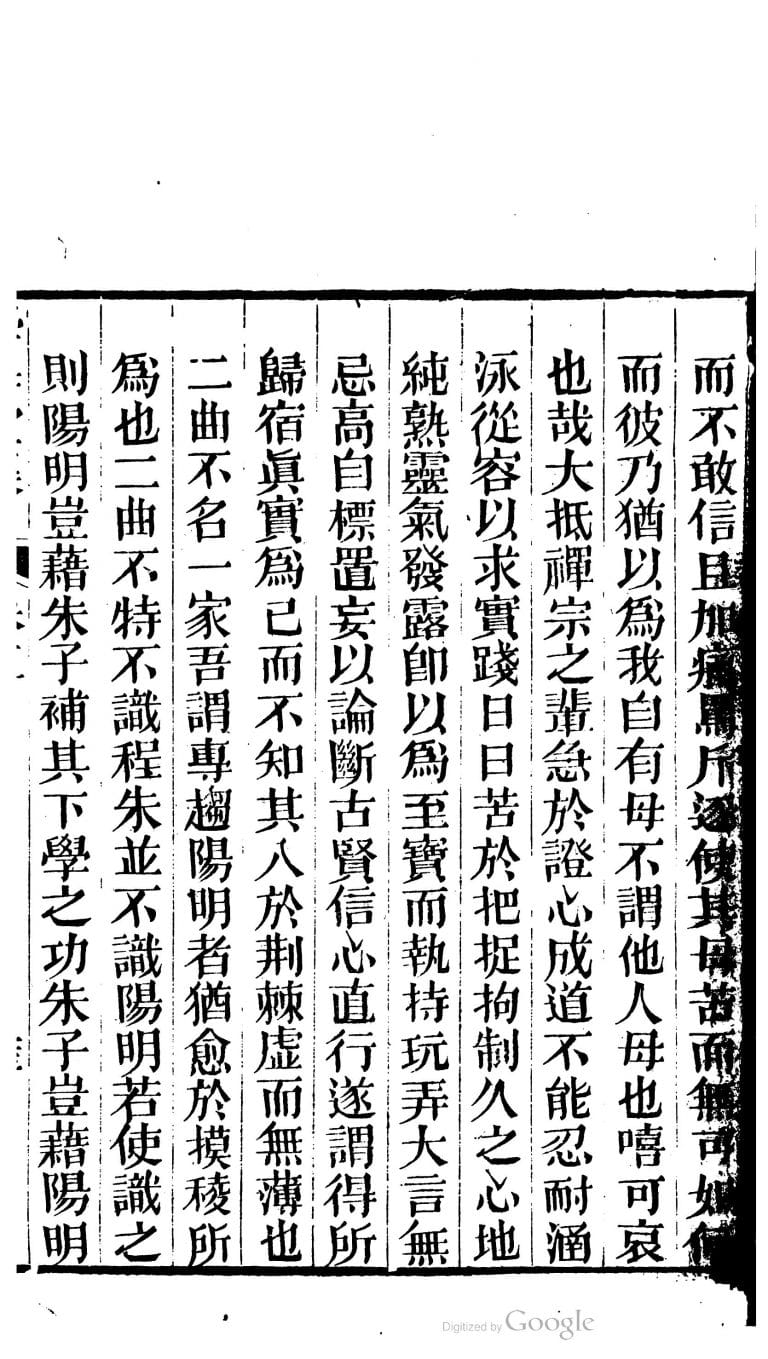 而不敢信且加痛罵斥逐使其母苦而無可如何
而彼乃猶以爲我自有母不謂他人母也嘻可哀
也哉大抵禪宗之輩急於證心成道不能忍耐涵
泳從容以求實踐日日苦於把捉拘制久之心地
純熟靈氣發露卽以爲至寶而執持玩弄大言無
忌高自標置妄以論斷古賢信心直行遂謂得所
歸宿眞實爲己而不知其入於荆棘虛而無薄也
二曲不名一家吾謂專趨陽明者猶愈於摸稜所
爲也二曲不特不識程朱並不識陽明若使識之
則陽明豈藉朱子補其下學之功朱子豈藉陽明
Digitized by Google